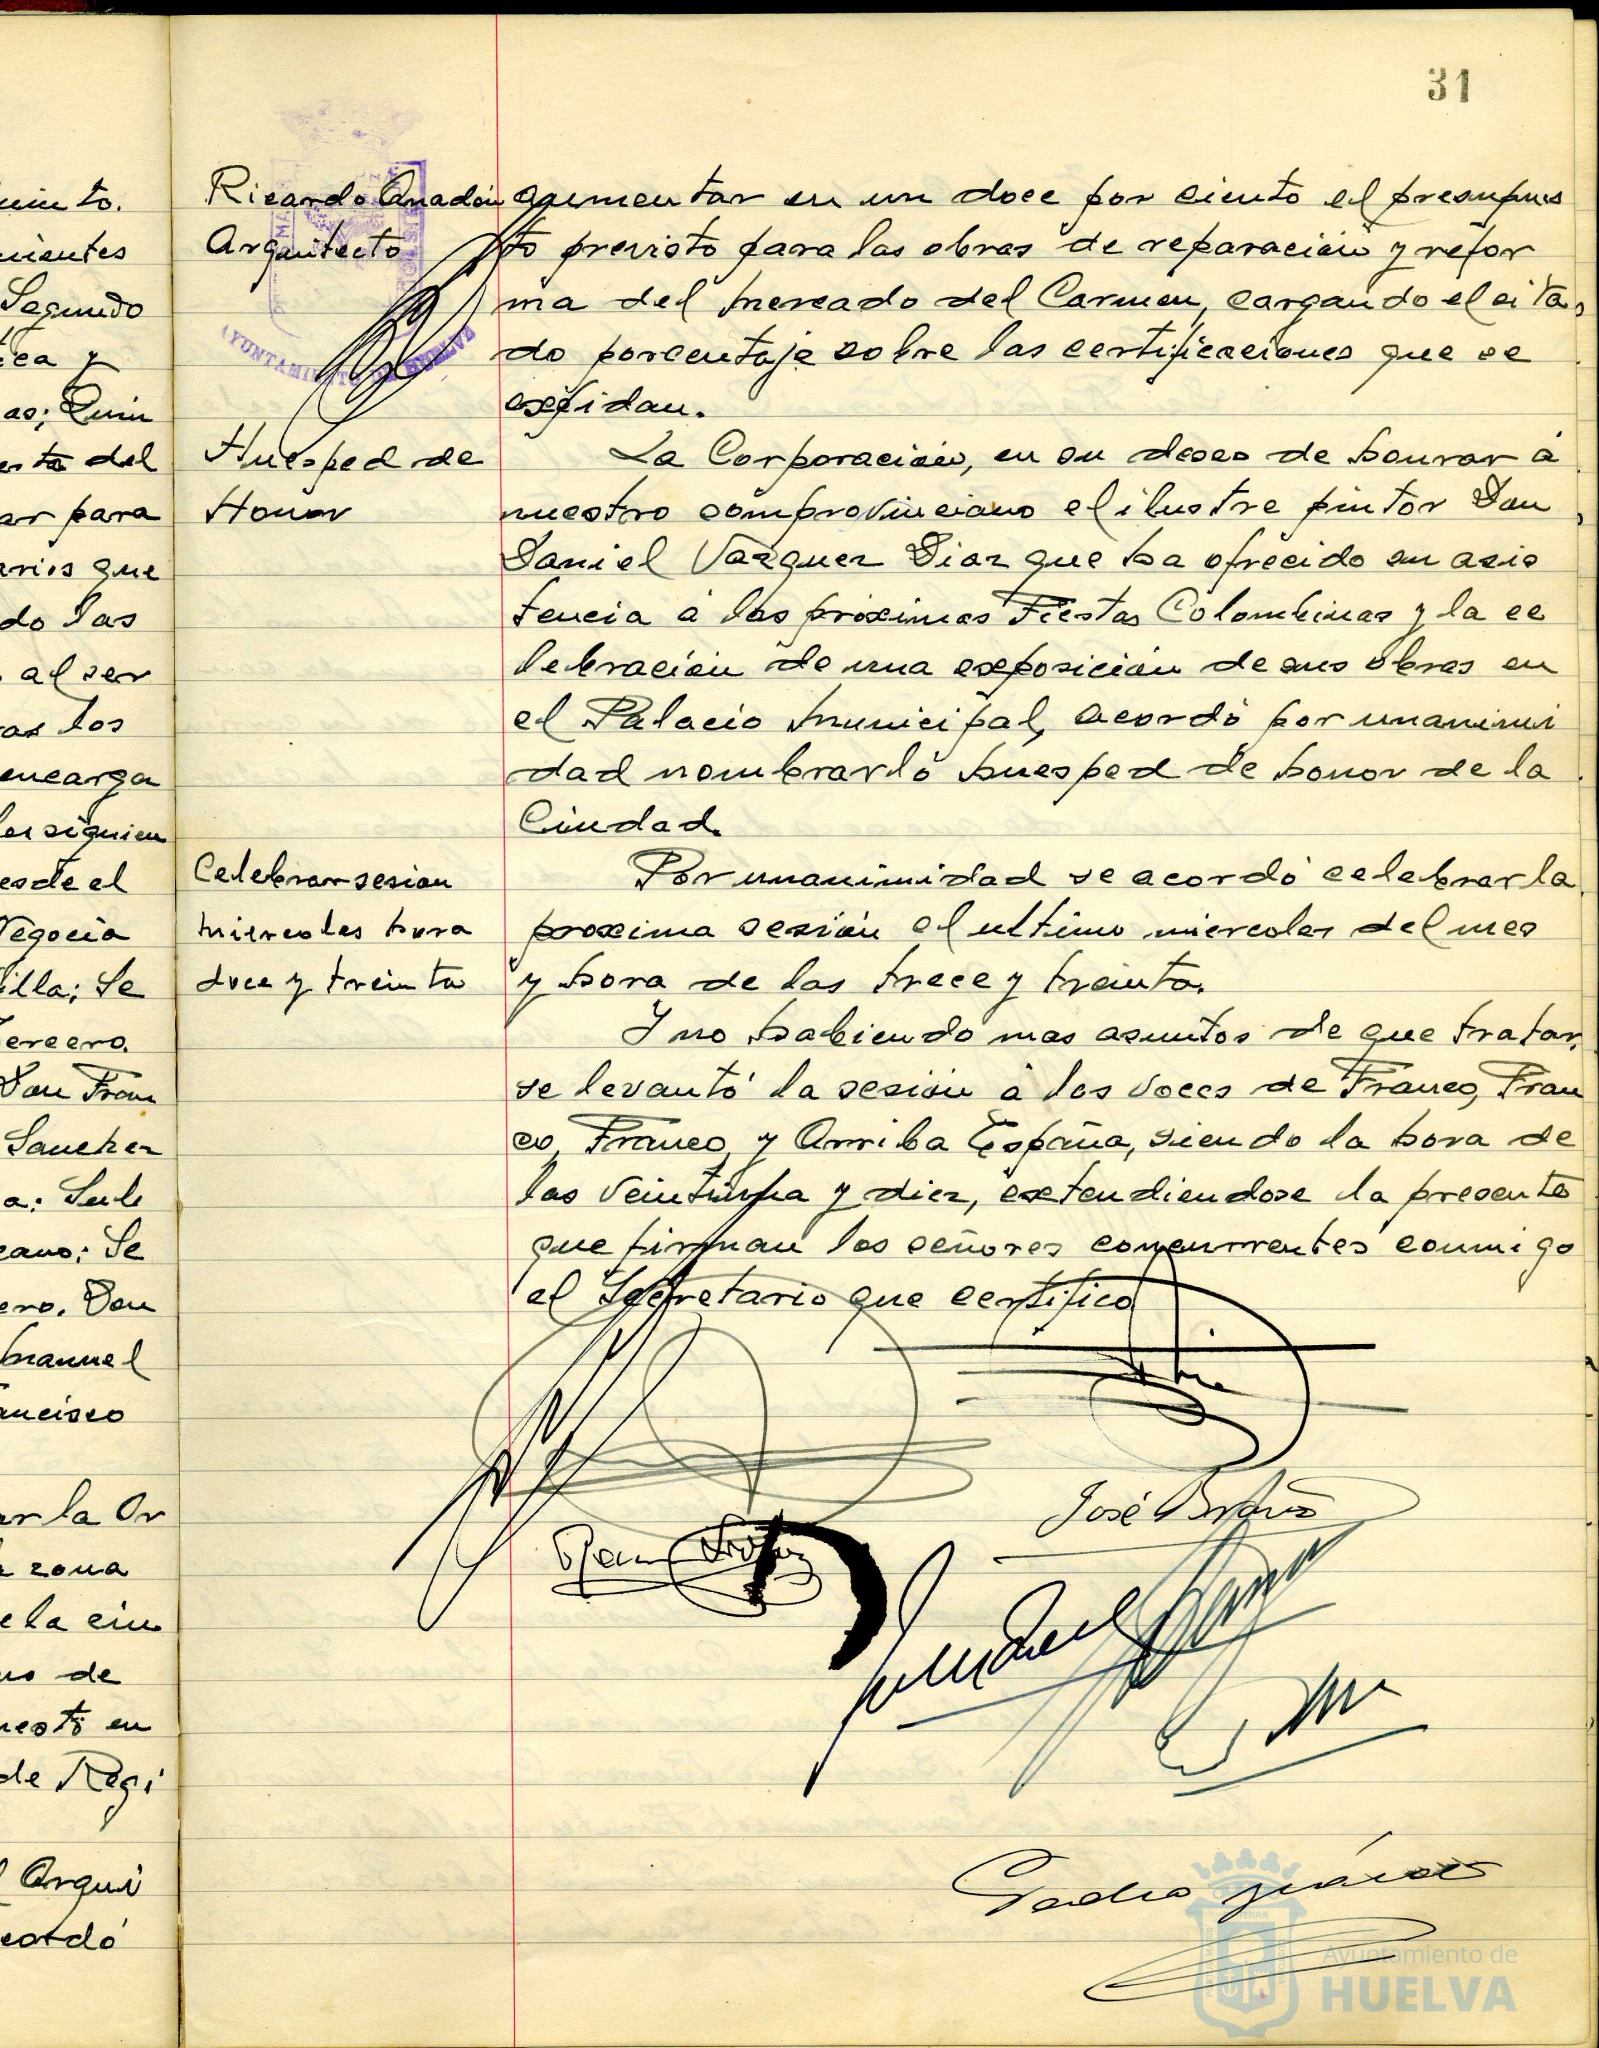 31
uientes
Segundo
as; Quin
ar para
arios que
do las
al ser
encarga
esde el
Negocia
illa; Se
Tercero.
Don Fran
Sanchez
ero. Don
Manuel
ancisco
ar la Or
zona
uesto en
de Regi
Arqui
cordó
Ricardo Anadón
Arquitecto
AYUNTAMIENTO DE HUELVA
Huesped de
Honor
Celebrar sesion
miercoles hora
doce y treinta
aumentar en un doce por ciento el presupues
to previsto para las obras de reparación y refor
ma del Mercado del Carmen, cargando el cita
do porcentaje sobre las certificaciones que se
expidan.
La Corporación, en su deseo de honrar á
nuestro comprovinciano el ilustre pintor Don
Daniel Vazquez Diaz que ha ofrecido su asis
tencia á las próximas Fiestas Colombinas y la ce
lebración de una exposición de sus obras en
el Palacio Municipal, acordó por unanimi
dad nombrarló huesped de honor de la
Ciudad.
Por unanimidad se acordó celebrar la
proxima sesión el ultimo miercoles del mes
y hora de las trece y treinta.
Y no habiendo mas asuntos de que tratar,
se levantó la sesión á los voces de Franco, Fran
co, Franco, y Arriba España, siendo la hora de
las y diez, extendiendose la presente
que firman los señores concurrentes conmigo
el Secretario que certifico
José Bravo
Pedro
Ayuntamiento de
HUELVA